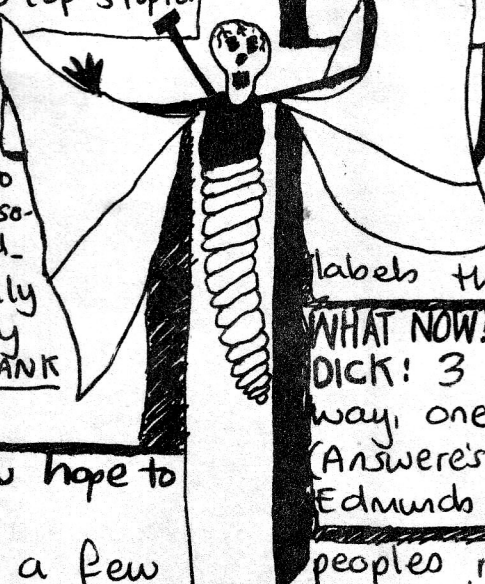 so-
ly
ANK
hope to
a few
labels th
WHAT NOW!
DICK! 3
way, one
(Answere's
Edmunds
peoples